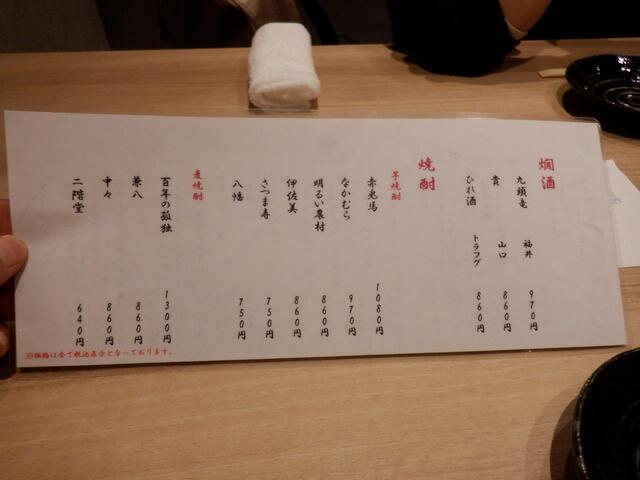 燗酒
九頭竜 福井 970円
貴 山口 860円
ひれ酒 トラフグ 860円
焼酎
芋焼酎
赤兎馬 1080円
なかむら 970円
明るい農村 860円
伊佐美 860円
さつま寿 750円
八幡 750円
麦焼酎
百年の孤独 1300円
兼八 860円
中々 860円
二階堂 640円
※価格は全て税込表示となっております。